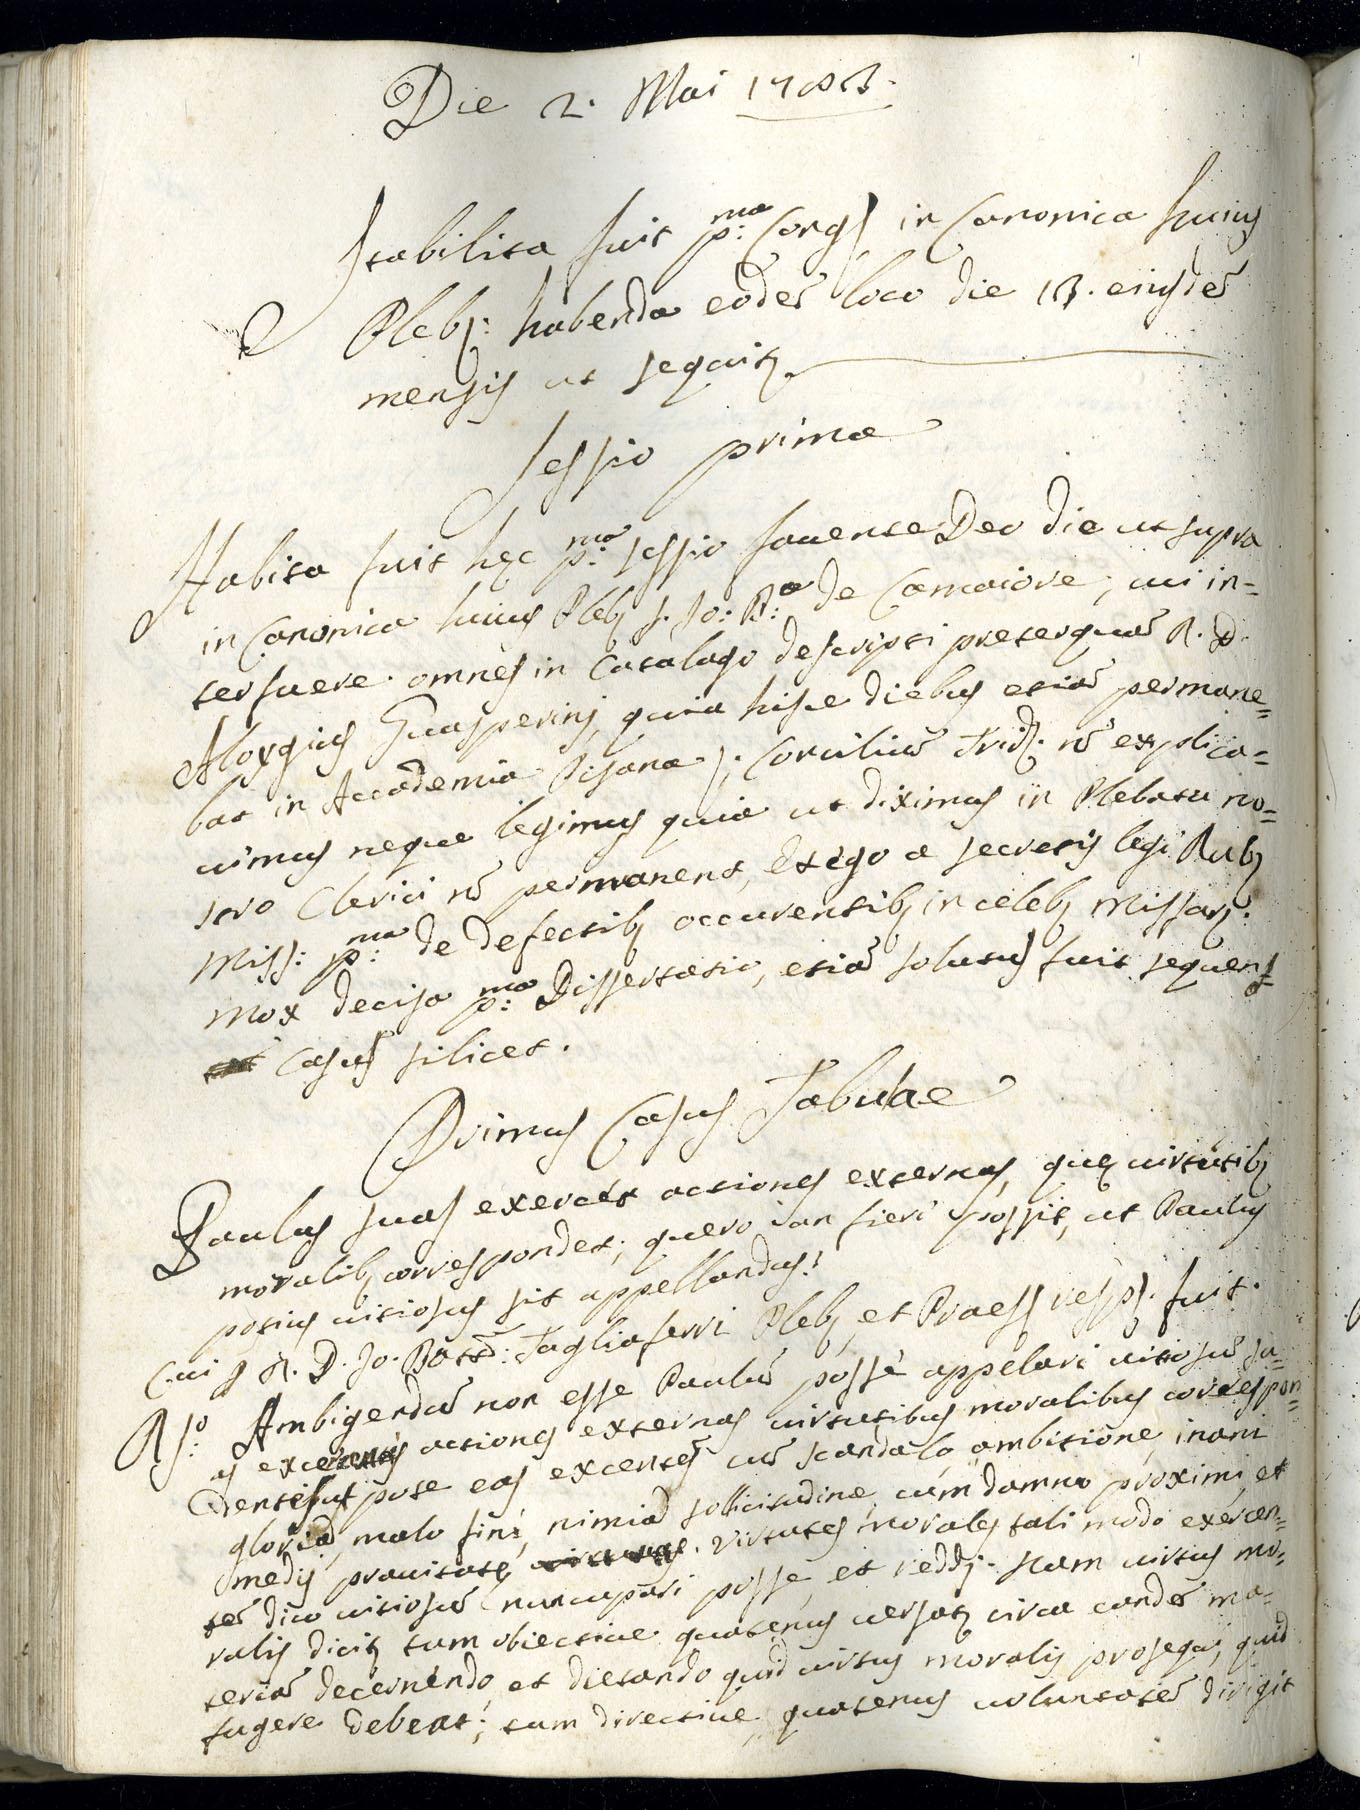 Die 2. Mai 1783.
Stabilita fuit p:ma Congs in Canonica huius
Pleb: habenda eodẽ loco die 13. eiusdẽ
mensis ut sequit
Sessio prima
Habita fuit hęc p:ma sessio fauente Deo die ut supra
in Canonica huius Pleb S. Jo: B:a de Camaiore; cui in=
terfuere omnes in Catalogo descripti preterquã R. D.
Aloygius Guasperinj, quia hisce diebus etiã permane=
bat in Accademia Pisana; Conciliũ Trid: nõ explica=
uimus neque legimus quia ut diximus in Plebatu no=
stro Clerici nõ permanent, et ego a secretis legi Rub
Miss: p:ma de defectib occurentib in celeb Missar.
Mox decisa p:ma Dissertatio, etiã solutus fuit sequens
Casus silicet.
Primus Casus Tabulae
Paulus suas exercet actiones externas, quę uirtutib
moralib correspondet; quero an fieri possit, ut Paulus
potius uitiosus sit appellandus?
Cui p R. D. Jo. Battã: Tagliaferri Pleb et Praess resps. fuit.
R:so Ambigendũ non esse Paulũ posse appelari uitiosũ su=
as exercens actiones externas uirtutibus moralibus correspon=
dentes, put pote eas excensẽs cũ scandalo, ambitione, inani
gloria, malo fine, nimia sollicitudine, cum damno proximi et
medij prauitate. Virtutes morales tali modo exercen=
tẽ dico uitiosũ nuncupari posse, et reddj. Nam uirtus mo=
ralis dicit tum obiectiue quatenus uersat circa eandẽ ma=
teriã decernendo, et dictando quid uirtus moralis prosequi, quid
fugere debeat; tum directiue, quatenus uoluntatẽ dirigit